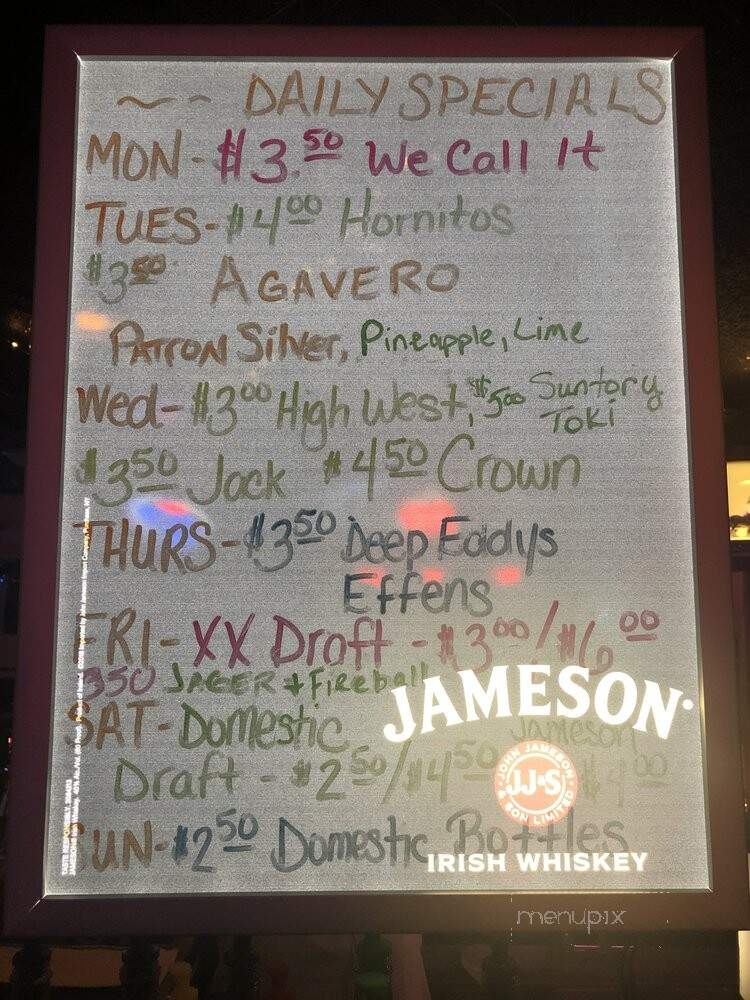 ~ - DAILY SPECIALS
MON - $3.50 We Call It
TUES - $4.00 Hornitos
$3.50 AGAVERO
PATRON Silver, Pineapple, Lime
Wed - $3.00 High West, $5.00 Suntory
Toki
$3.50 Jack $4.50 Crown
THURS - $3.50 Deep Eddys
Effens
FRI - XX Draft - $3.00/$6.00
350 JAGER + Fireball
JAMESON
SAT - Domestic Jameson
Draft - $2.50/$4.50 00
JOHN JAMESON
JJ&S
SON LIMITED
SUN - $2.50 Domestic Bottles
IRISH WHISKEY
menupix